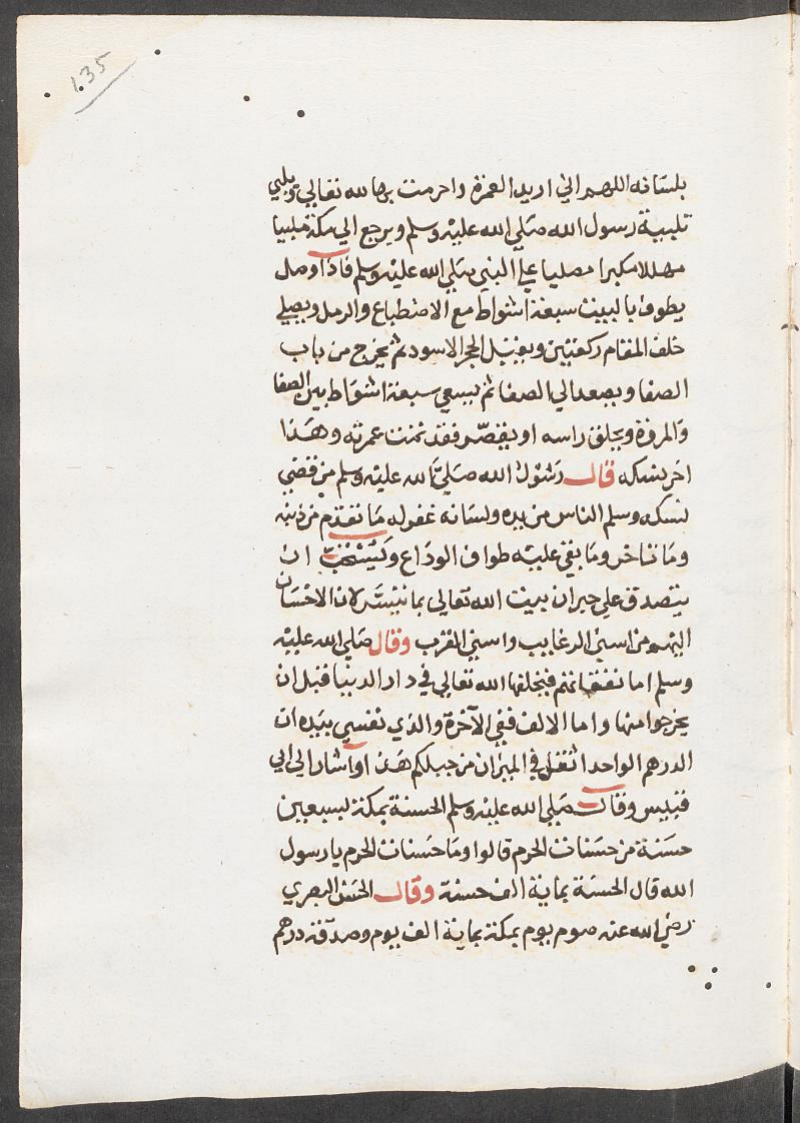 135
بلسانه اللهم اني اريد العمرة واحرمت بها لله تعالي ويلبي
تلبية رسول الله صلي الله عليه وسلم ويرجع الي مكة ملبيا
مهللا مكبرا مصليا علي النبي صلي الله عليه وسلم فاذا وصل
يطوف بالبيت سبعة اشواط مع الاضطباع والرمل ويصلي
خلف المقام ركعتين ويقبل الحجر الاسود ثم يخرج من باب
الصفا ويصعد الي الصفا ثم يسعي سبعة اشواط بين الصفا
والمروة ويحلق راسه او يقصر فقد تمت عمرته وهذا
اخر نسكه قال رسول الله صلي الله عليه وسلم من قضي
نسكه وسلم الناس من يده ولسانه غفر له ما تقدم من ذنبه
وما تاخر وما بقي عليه طواف الوداع ويستحب ان
يتصدق علي جيران بيت الله تعالي بما تيسر لان الاحسان
اليهم من اسني الرغايب واسني القرب وقال صلي الله عليه
وسلم اما نفقاتكم فيخلفها الله تعالي في دار الدنيا قبل ان
يخرجوا منها واما الالف ففي الآخرة والذي نفسي بيده ان
الدرهم الواحد اثقل في الميزان من جبلكم هذا واشار الي ابي
قبيس وقال صلي الله عليه وسلم الحسنة بمكة بسبعين
حسنة من حسنات الحرم قالوا وما حسنات الحرم يا رسول
الله قال الحسنة بماية الف حسنة وقال الحسن البصري
رضي الله عنه صوم يوم بمكة بماية الف يوم وصدقة درهم